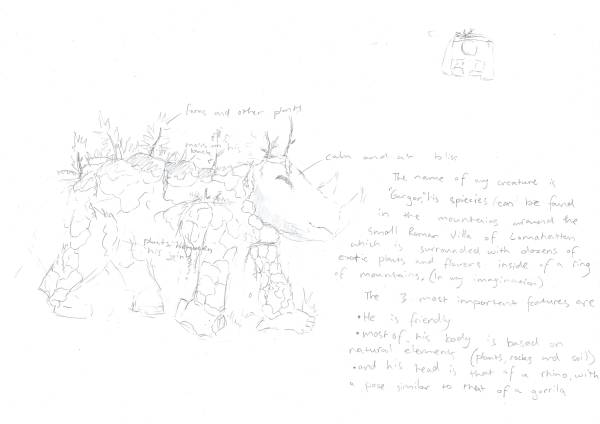 ferns and other plants
moss on his back
calm and at bliss
plants between his joints
The name of my creature is
"Gorgor," his spiecies can be found
in the mountains around the
small Roman Villa of
which is surrounded with dozens of
exotic plants and flowers inside of a ring
of mountains. (In my imagination)
The 3 most important features are
• He is friendly
• most of his body is based on
natural elements (plants, rocks and soil)
• and his head is that of a rhino, with
a pose similar to that of a gorrila